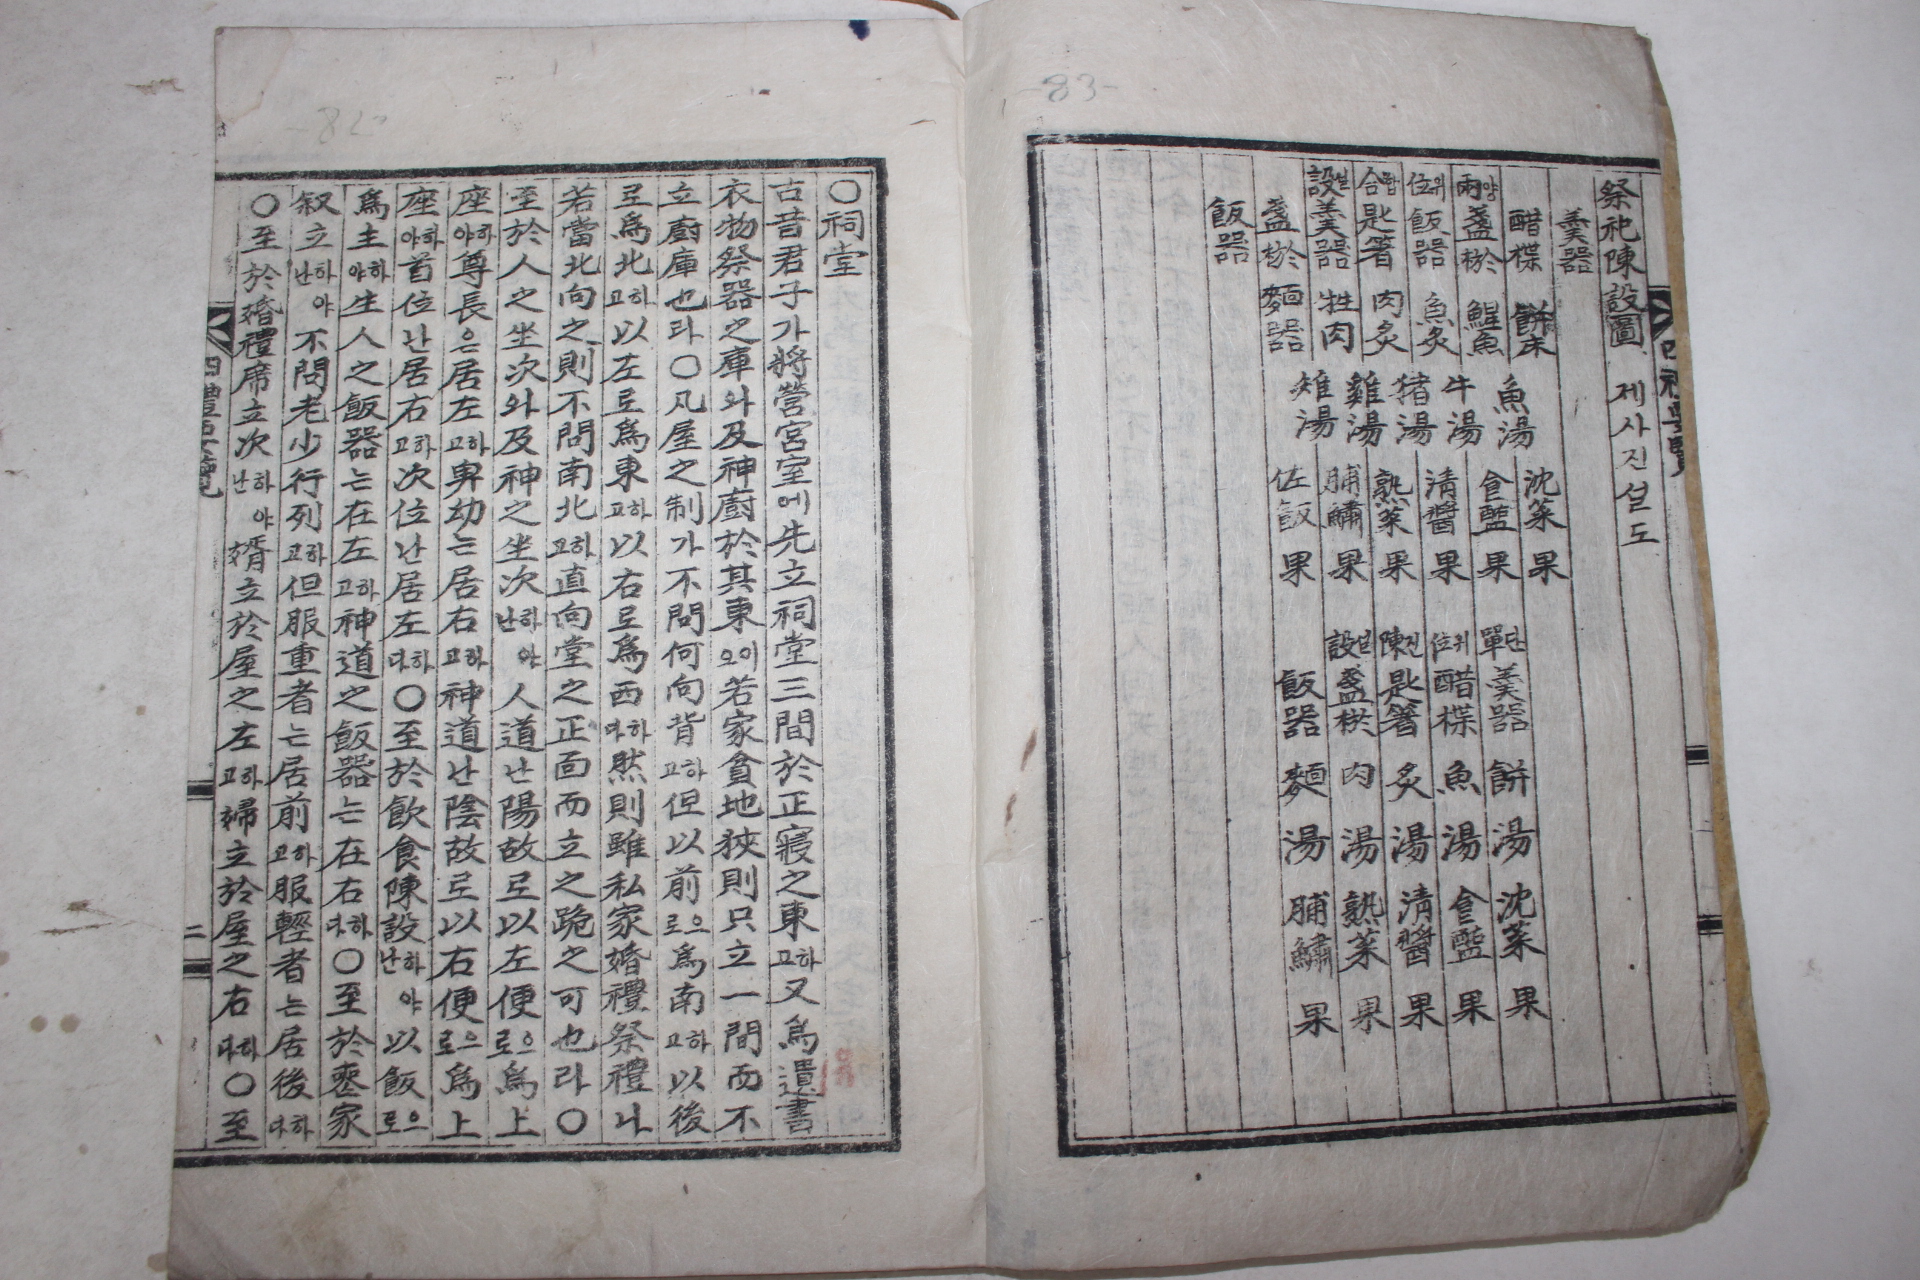 -83-
祭祀陳設圖 제사진설도
羹器
醋楪 餠床 魚湯 沈菜 果
兩양盞柶於 鯹魚 牛湯 食醢 果
位위飯器 魚炙 猪湯 淸醬 果
合합匙箸 肉炙 雞湯 熟菜 果
設설羹器 牲肉 雉湯 脯鱐 果
盞於 麵器 佐飯 果
飯器
單단羹器 餠 湯 沈菜 果
位위醋楪 魚 湯 食醢 果
陳진匙箸 炙 湯 淸醬 果
設설盞 肉 湯 熟菜 果
飯器 麵 湯 脯鱐 果
四禮要覽
-82-
〇祠堂
古昔君子가將營宮室에先立祠堂三間於正寢之東고하又爲遺書
衣物祭器之庫와及神廚於其東오이若家貧地狹則只立一間而不
立廚庫也라〇凡屋之制가不問何向背고하但以前로으爲南고하以後
로爲北고하以左로爲東고하以右로爲西다하然則雖私家婚禮祭禮나
若當北向之則不問南北고하直向堂之正面而立之跪之可也라〇
至於人之坐次와及神之坐次난하야人道난陽故로以左便로으爲上
座야하尊長은居左고하卑幼는居右고하神道난陰故로以右便로으爲上
座야하首位난居右고하次位난居左다하〇至於飮食陳設난하야以飯로으
爲主야하生人之飯器는在左고하神道之飯器는在右다하〇至於喪家
叙立난하야不問老少行列고하但服重者는居前고하服輕者는居後다하
〇至於婚禮席立次난하야婿立於屋之左고하婦立於屋之右다하〇至
四禮要覽 二